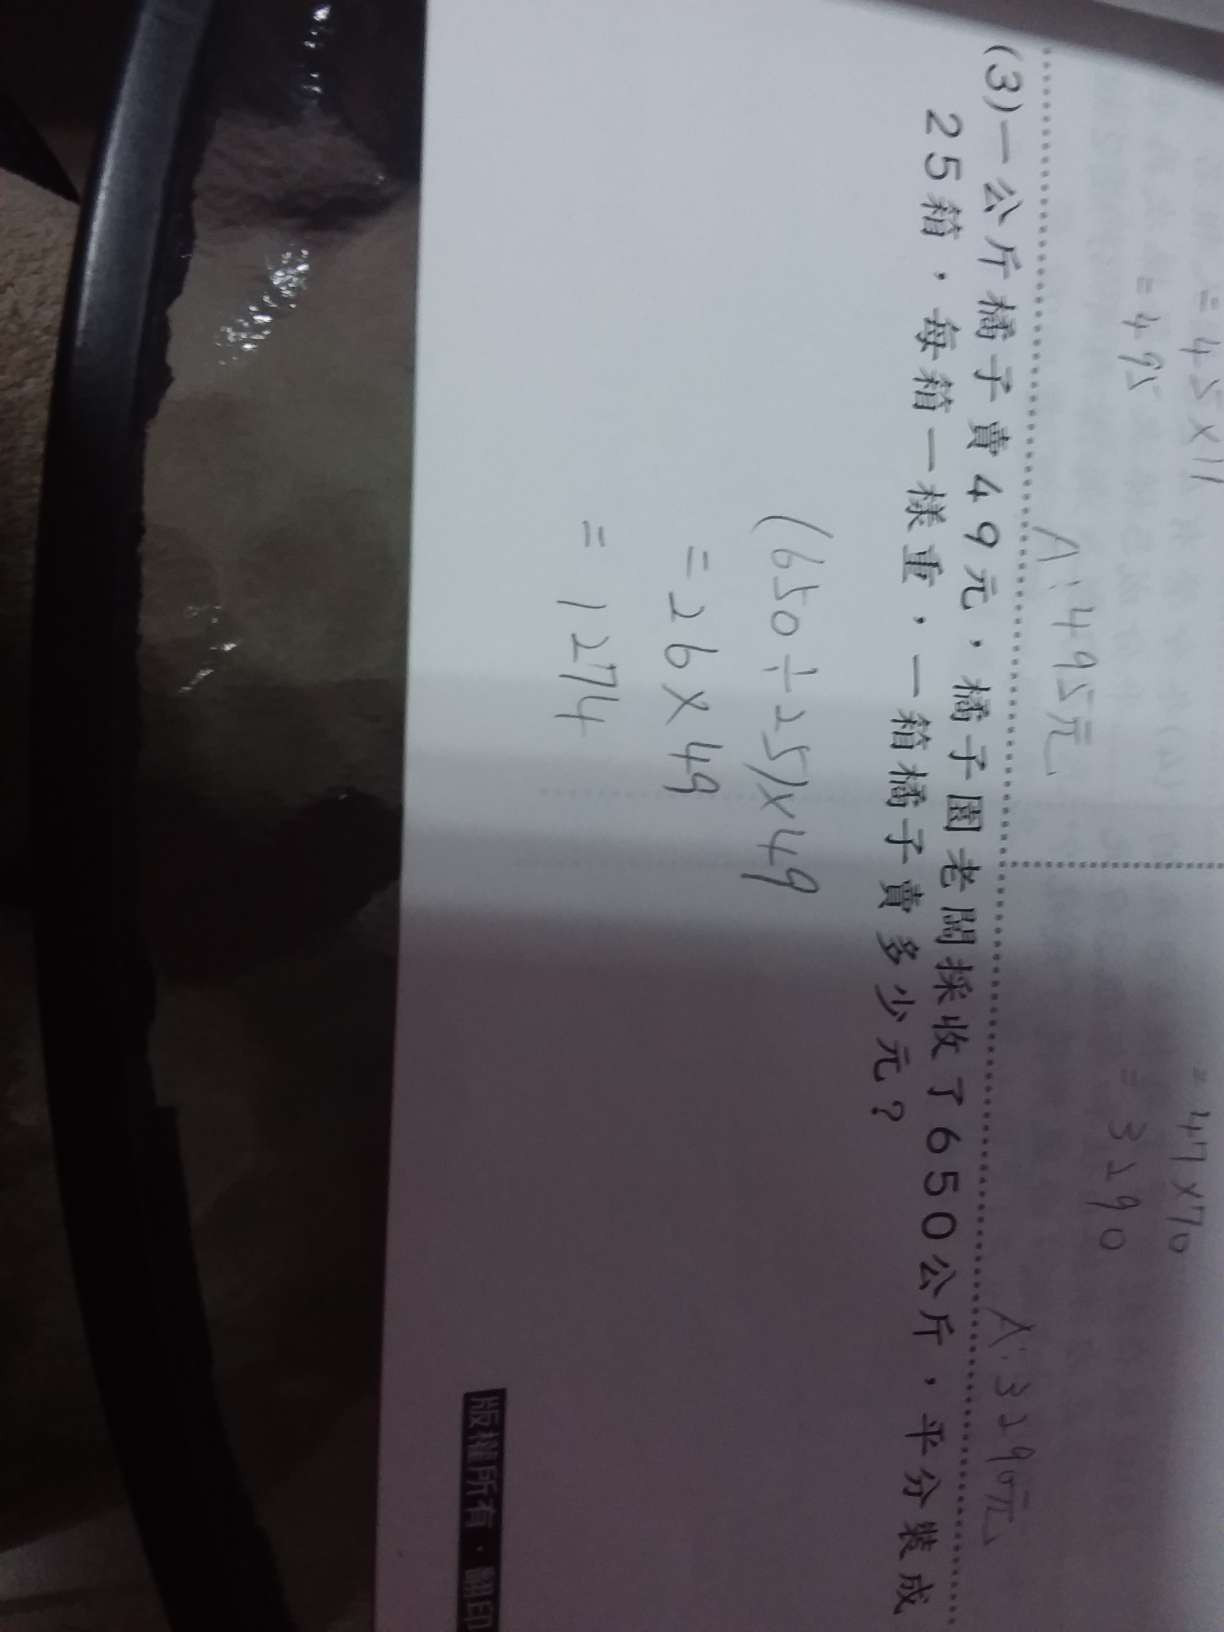 = 45×11
= 495
A:495元
= 47×70
= 3290
A:3290元
(3)一公斤橘子賣49元,橘子園老闆採收了650公斤,平分裝成
25箱,每箱一樣重,一箱橘子賣多少元?
(650÷25)×49
= 26×49
= 1274
版權所有・翻印